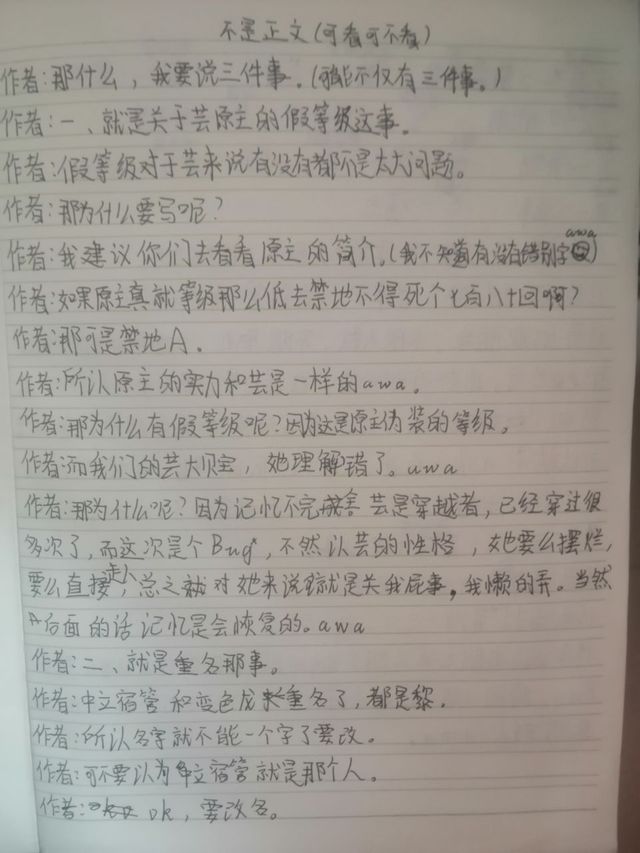 不是正文(可看可不看)
作者:那什么,我要说三件事。(可能不仅有三件事。)
作者:一、就是关于芸原主的假等级这事。
作者:假等级对于芸来说有没有都不是太大问题。
作者:那为什么要写呢?
作者:我建议你们去看看原主的简介。(我不知道有没有错别字awa)
作者:如果原主真就等级那么低去禁地不得死个七百八十回啊?
作者:那可是禁地A。
作者:所以原主的实力和芸是一样的awa。
作者:那为什么有假等级呢?因为这是原主伪装的等级。
作者:而我们的芸大贝宝,她理解错了。uwa
作者:那为什么呢?因为记忆不完 芸是穿越者,已经穿过很
多次了,而这次是个Bug,不然以芸的性格,她要么摆烂,
要么直接走人,总之就对她来说就是关我屁事,我懒的弄。当然
后面的话记忆是会恢复的。awa
作者:二、就是重名那事。
作者:中立宿管和变色龙重名了,都是黎。
作者:所以名字就不能一个字了要改。
作者:可不要认为中立宿管就是那个人。
作者:ok,要改名。